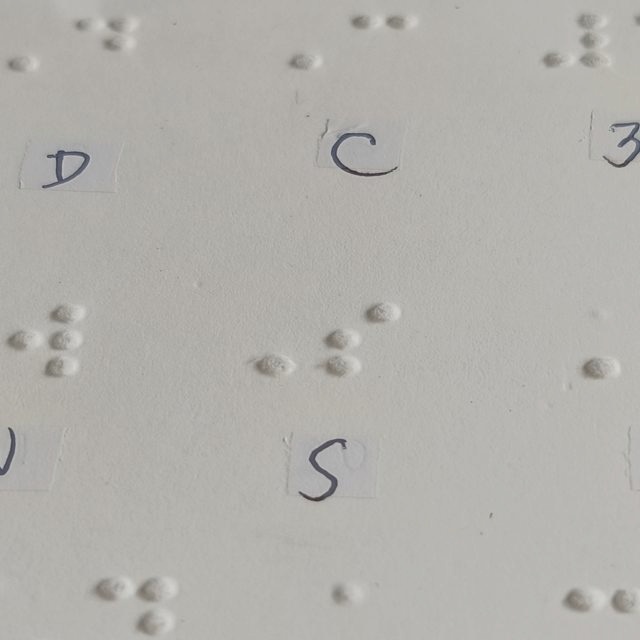 D C 3
S